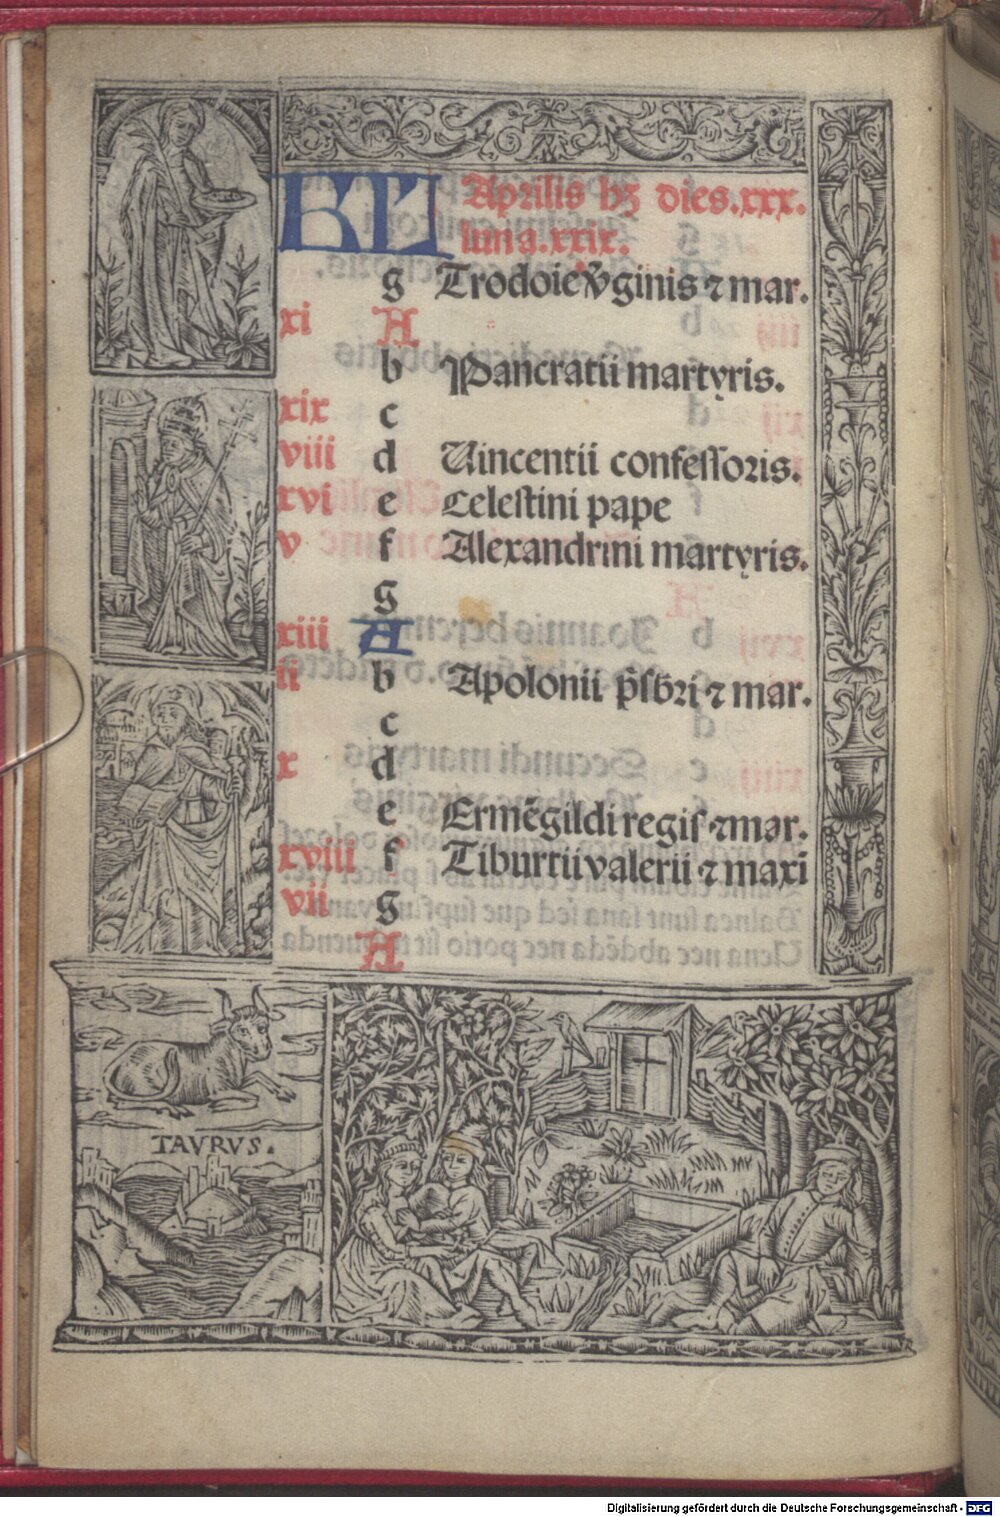 KL Aprilis hꝫ dies.xxx.
luna.xxix.
g Trodoie v̄ginis ⁊ mar.
xi A
b Pancratii martyris.
xix c
viii d Uincentii confeſſoris.
xvi e Celeſtini pape
v f Alexandrini martyris.
g
xiii A
ii b Apolonii p̄ſbri ⁊ mar.
c
x d
e Ermēgildi regiſ ⁊ mar.
xviii f Tiburtii valerii ⁊ maxi
vii g
A
TAVRVS.
Digitalisierung gefördert durch die Deutsche Forschungsgemeinschaft - DFG